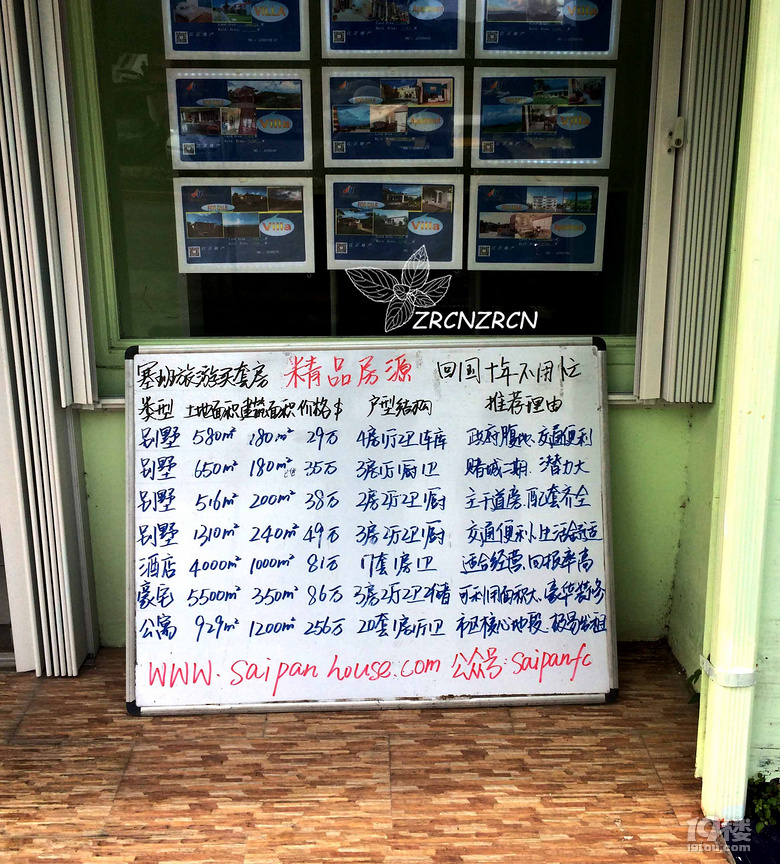 Villa
Villa
Villa
ZRCNZRCN
塞班旅游买套房 精品房源 回国十年不用忙
类型 土地面积 建筑面积 价格$ 户型结构 推荐理由
别墅 580m² 180m² 29万 4房1厅2卫1车库 政府腹地、交通便利
别墅 650m² 180m² 35万 3房1厅1厨1卫 赌城二期、潜力大
别墅 516m² 200m² 38万 2房2厅2卫1厨 主干道房、配套齐全
别墅 1310m² 240m² 49万 3房2厅2卫1厨 交通便利、生活舒适
酒店 4000m² 1000m² 81万 11套1房1卫 适合经营、回报率高
豪宅 5500m² 350m² 86万 3房2厅2卫 可利用面积大、豪华装修
公寓 929m² 1200m² 256万 20套1房1厅1卫 市区核心地段、极易出租
www.saipanhouse.com 公众号:saipanfc
19楼
19lou.com